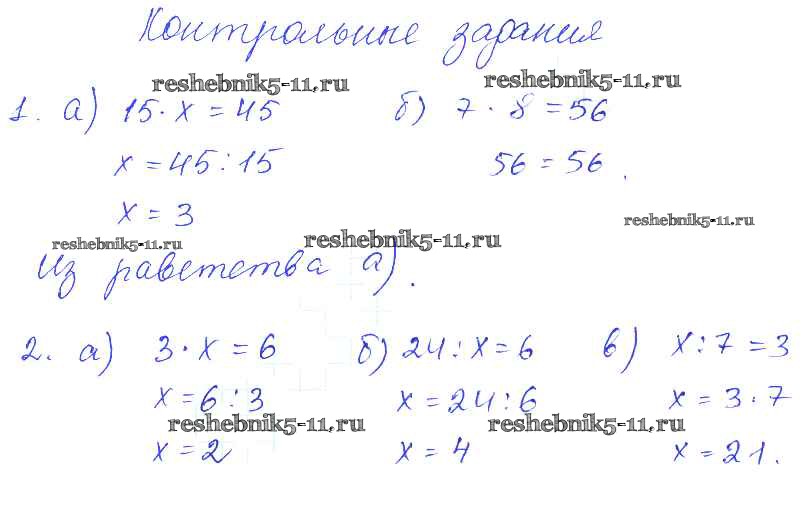 Контрольные задания
reshebnik5-11.ru reshebnik5-11.ru
1. а) 15 · x = 45 б) 7 · 8 = 56
x = 45 : 15 56 = 56.
x = 3
reshebnik5-11.ru reshebnik5-11.ru reshebnik5-11.ru
Из раветства а).
2. а) 3 · x = 6 б) 24 : x = 6 в) x : 7 = 3
x = 6 : 3 x = 24 : 6 x = 3 · 7
reshebnik5-11.ru reshebnik5-11.ru
x = 2 x = 4 x = 21.